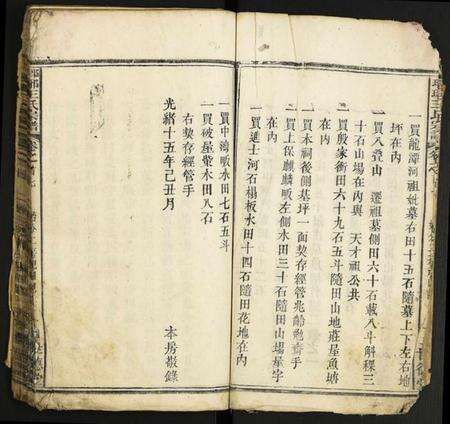 一買龍潭河祖妣墓右田十五石隨墓上下左右地
坪在內
一買八疊山 遷祖墓側田六十石載八斗解糧三
十石山場在內與 天才祖公共
一買殷家衝田六十九石五斗隨田山地莊屋魚塘
在內
一買本祠後側基坪一面契存經管兆
一買上保麒麟畈左側水田三十石隨田山場屋宇
在內
一買延士河石榻板水田十四石隨田花地在內
一買中灣畈水田七石五斗
一買破屋衝水田八石
右契存經管手
光緒十五年己丑月
本房敬錄